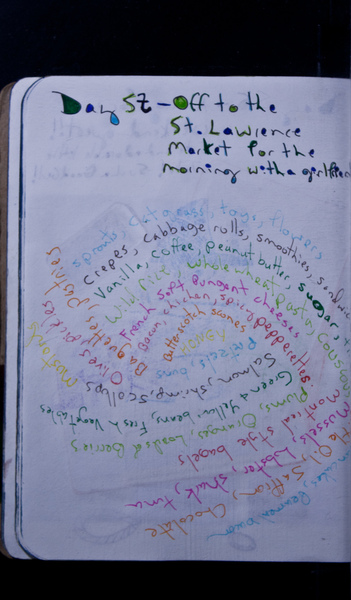 Day 52 - Off to the
St. Lawrence
Market for the
morning with a girlfriend
sprouts, dutch eggs, toys, flowers
crepes, cabbage rolls, smoothies,
Vanilla, coffee, peanut butter, sugar
Wild rice, whole wheat pasta, couscous
French soft pungent cheeses
bacon, chicken, spicy pepperettes
Butterscotch scones
Pretzels, buns
Baguettes, pastries
Olives, pickles
mustards
Salmon, shrimp, scallops
Green & yellow beans, fresh vegetables
Plums, Oranges, Loads of Berries
montreal style bagels
mussels, lobster, shark, tuna
Oil, Saffron, Chocolate